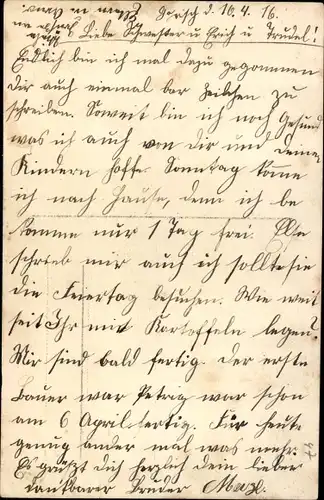 Dorsch d. 16.4.16.
Liebe Schwester u Erich u Trudel!
Endlich bin ich mal dazu gekommen
Dir auch einmal par Zeilchen zu
schreiben. Soweit bin ich noch Gesund
was ich auch von Dir und deine
Kindern hoffe. Sonntag kome
ich nach Hause, denn ich be
komme nur 1 Tag frei. Else
schrieb mir auch ich sollte sie
die Feiertag besuchen. Wie weit
seit Ihr mit Kartoffeln legen?
Mir sind bald fertig. Der erste
Bauer war Petrig war schon
am 6 April fertig. Für heute
genug ander mal was mehr.
Es grüßt dich herzlich dem lieber
dankbarer Bruder Max.